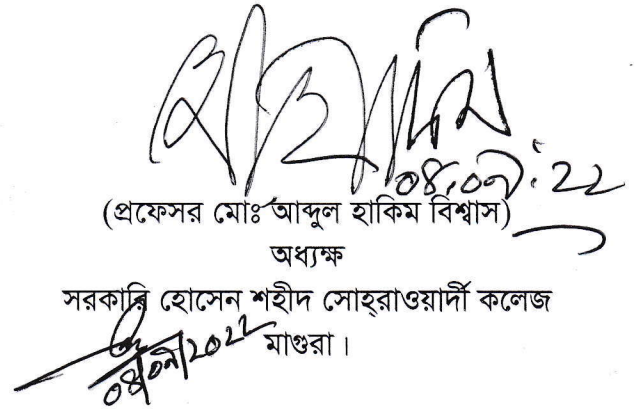 ০৪.০৭.২২
(প্রফেসর মোঃ আব্দুল হাকিম বিশ্বাস)
অধ্যক্ষ
সরকারি হোসেন শহীদ সোহ্‌রাওয়ার্দী কলেজ
মাগুরা।
০৪/০৭/২০২২